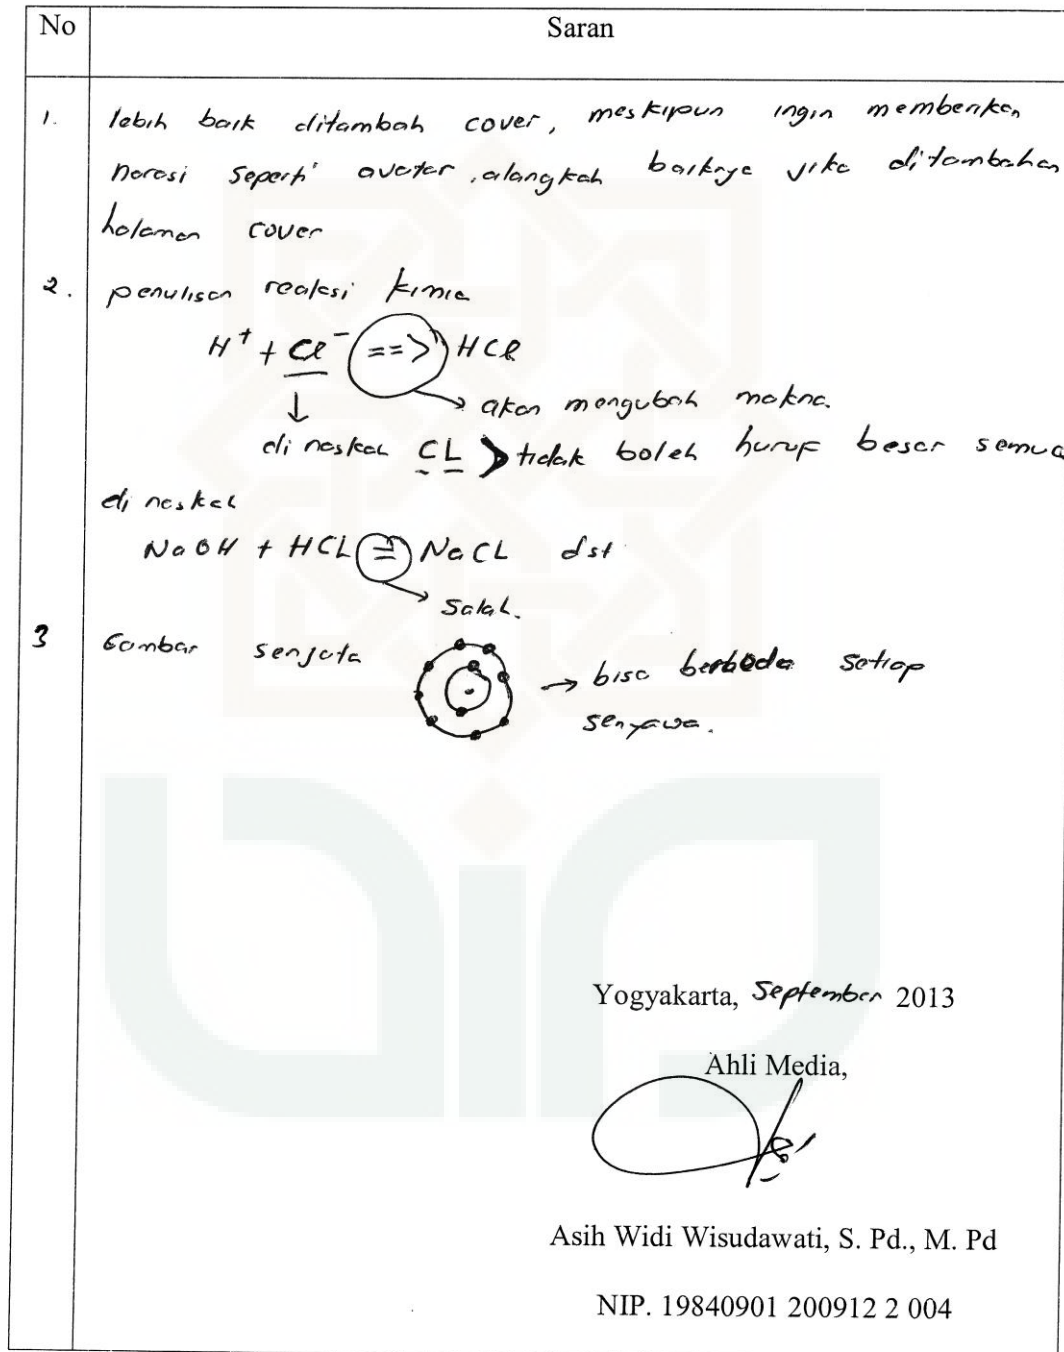 No Saran
1. lebih baik ditambah cover, meskipun ingin memberikan
narasi seperti avatar, alangkah baiknya jika ditambahan
halaman cover
2. penulisan reaksi kimia
H⁺ + Cl⁻ ==> HCl
→ akan mengubah makna.
↓
di naskah CL > tidak boleh huruf besar semua
di naskah
NaOH + HCL = NaCL dst
→ salah.
3 Gambar senjata → bisa berbeda setiap
senyawa.
Yogyakarta, September 2013
Ahli Media,
Asih Widi Wisudawati, S. Pd., M. Pd
NIP. 19840901 200912 2 004